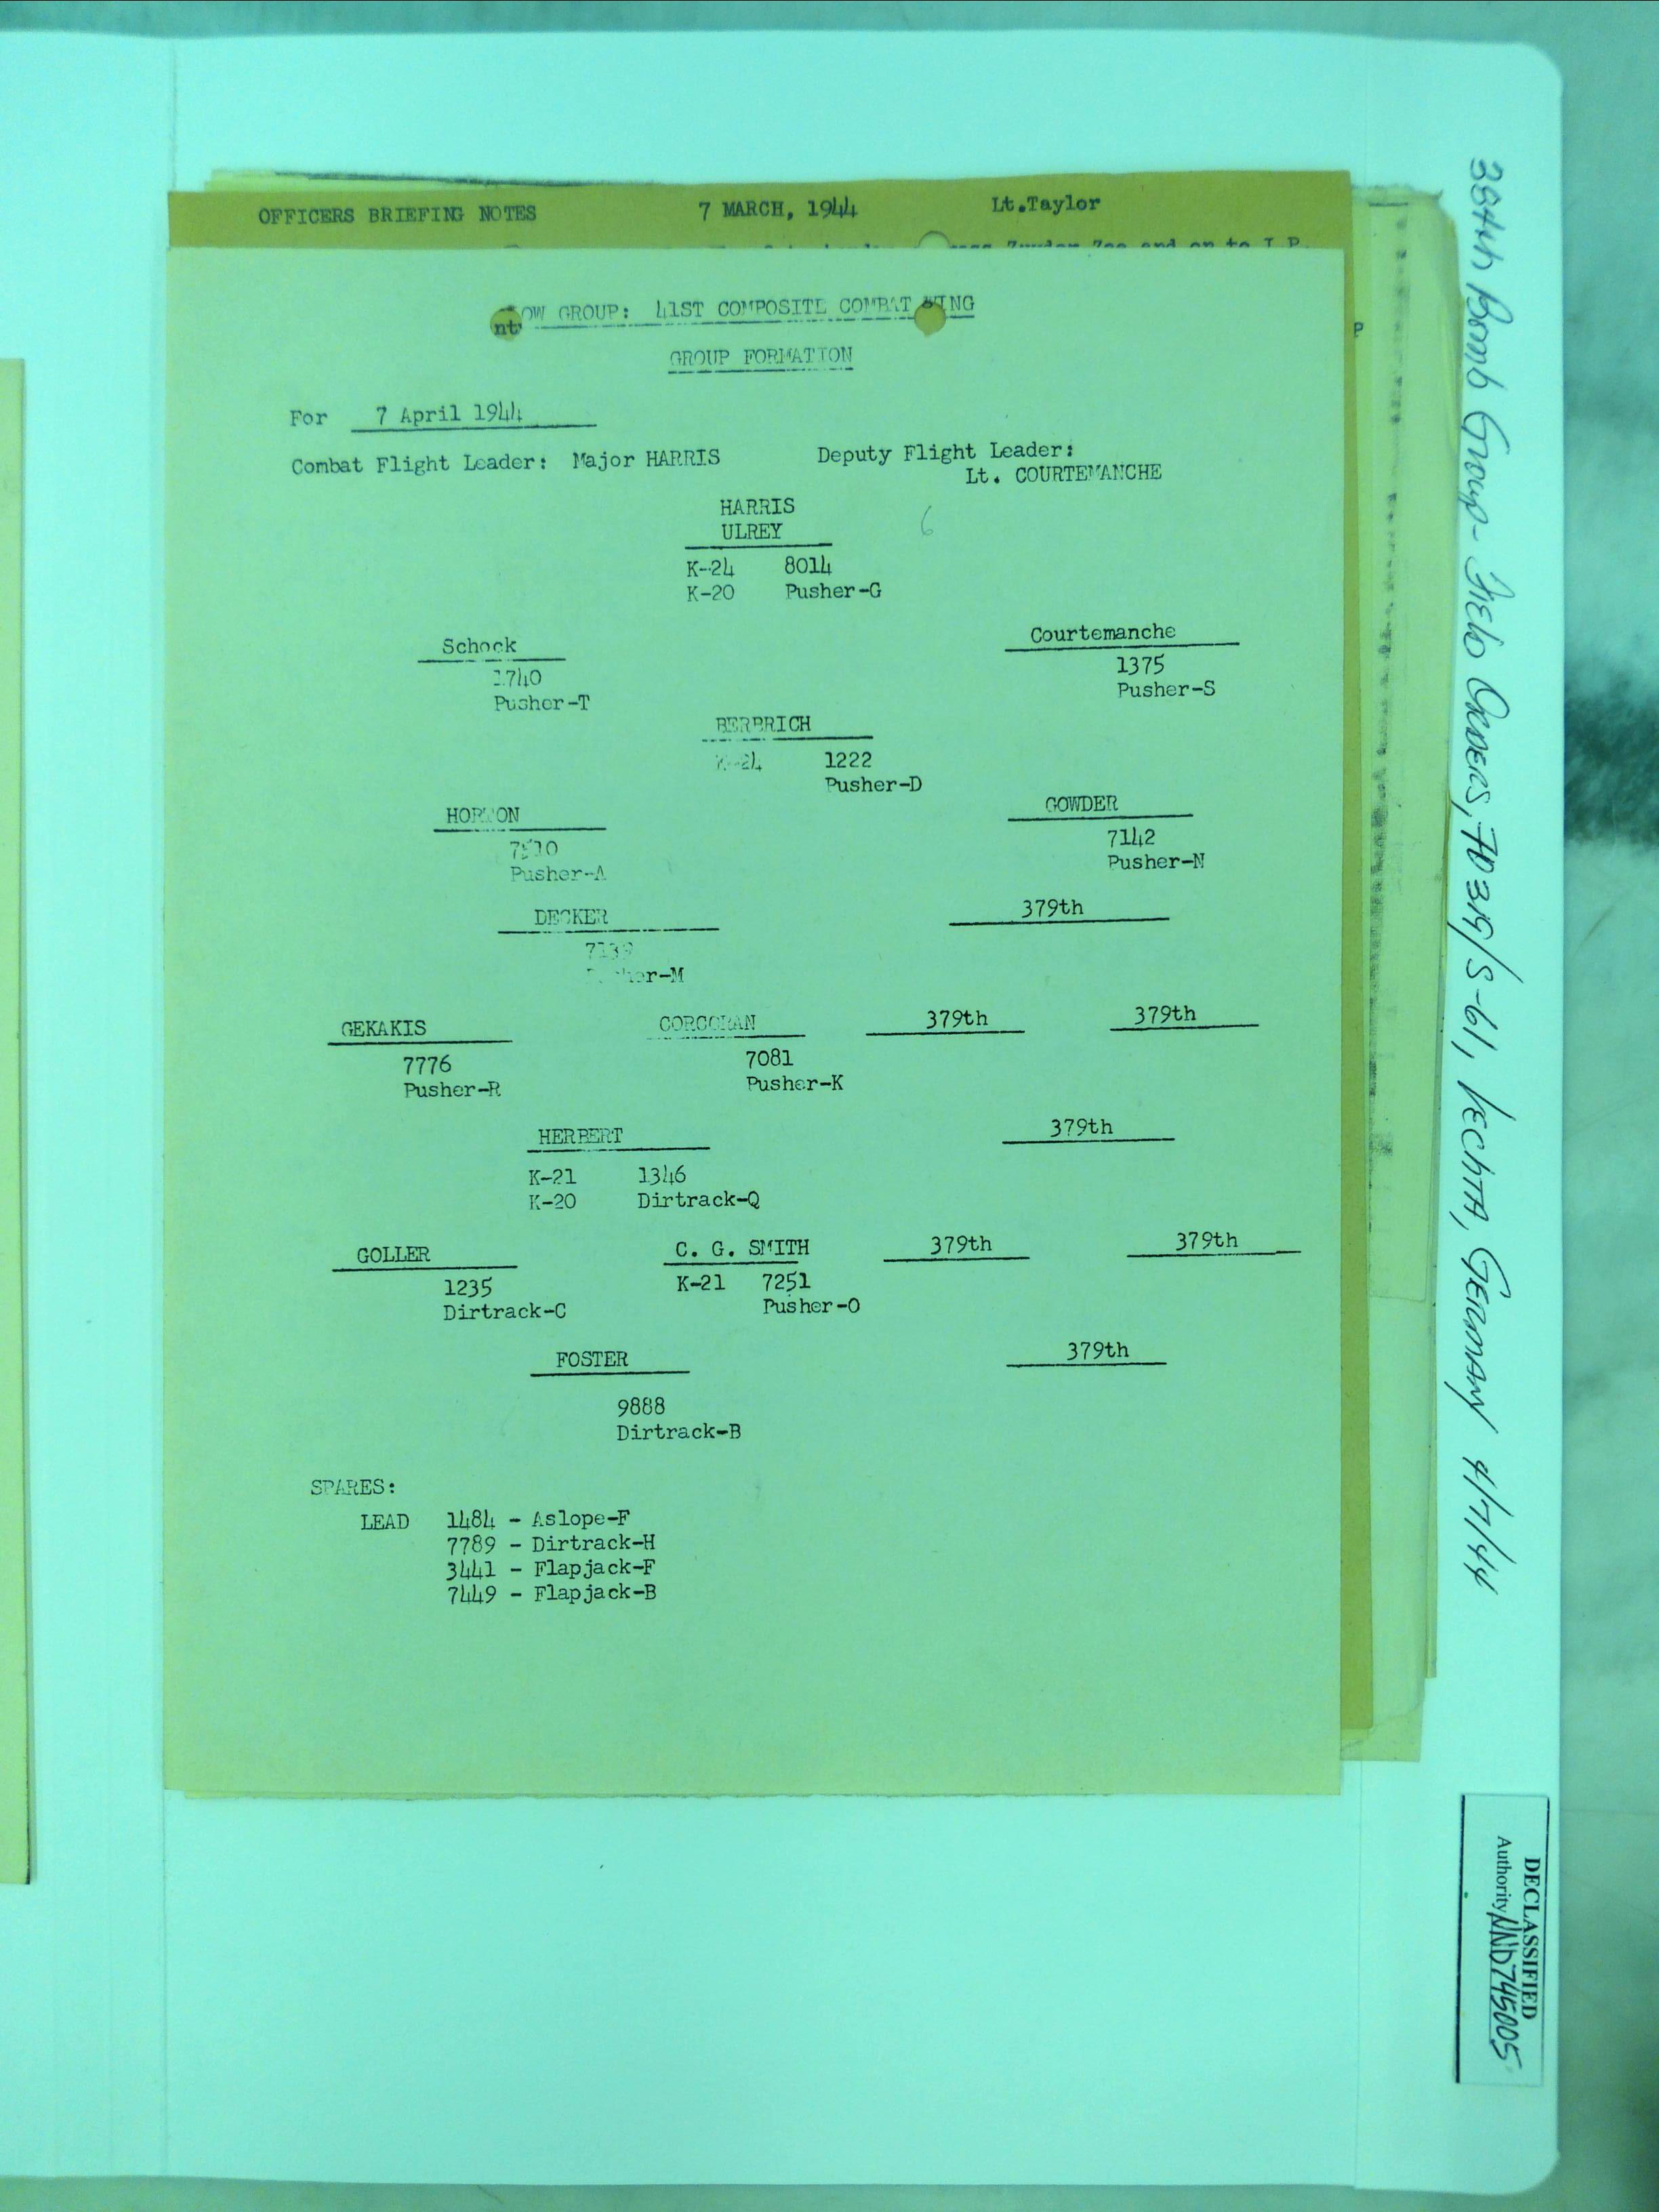 OFFICERS BRIEFING NOTES 7 MARCH, 1944 Lt.Taylor
Zuyder Zee and on to I.P.
OW GROUP: 41ST COMPOSITE COMBAT WING
nt
GROUP FORMATION
For 7 April 1944
Combat Flight Leader: Major HARRIS Deputy Flight Leader:
Lt. COURTEMANCHE
HARRIS
ULREY
6
K-24 8014
K-20 Pusher-G
Schock Courtemanche
1740 1375
Pusher-T Pusher-S
BERBRICH
K-24 1222
Pusher-D
HORTON GOWDER
7142
Pusher-A Pusher-N
DECKER 379th
Pusher-M
GEKAKIS CORCORAN 379th 379th
7776 7081
Pusher-R Pusher-K
HERBERT 379th
K-21 1346
K-20 Dirtrack-Q
GOLLER C. G. SMITH 379th 379th
1235 K-21 7251
Dirtrack-C Pusher-O
FOSTER 379th
9888
Dirtrack-B
SPARES:
LEAD 1484 - Aslope-F
7789 - Dirtrack-H
3441 - Flapjack-F
7449 - Flapjack-B
P
384th Bomb Group- Field Orders, FO 319/S-61, VECHTA, GERMANY 4/7/44
DECLASSIFIED
Authority NND745005